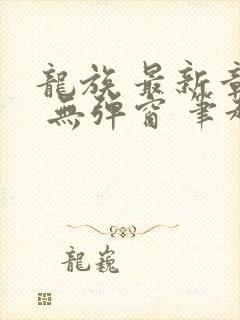 龍族 最新章
無彈窗 筆
龍巍